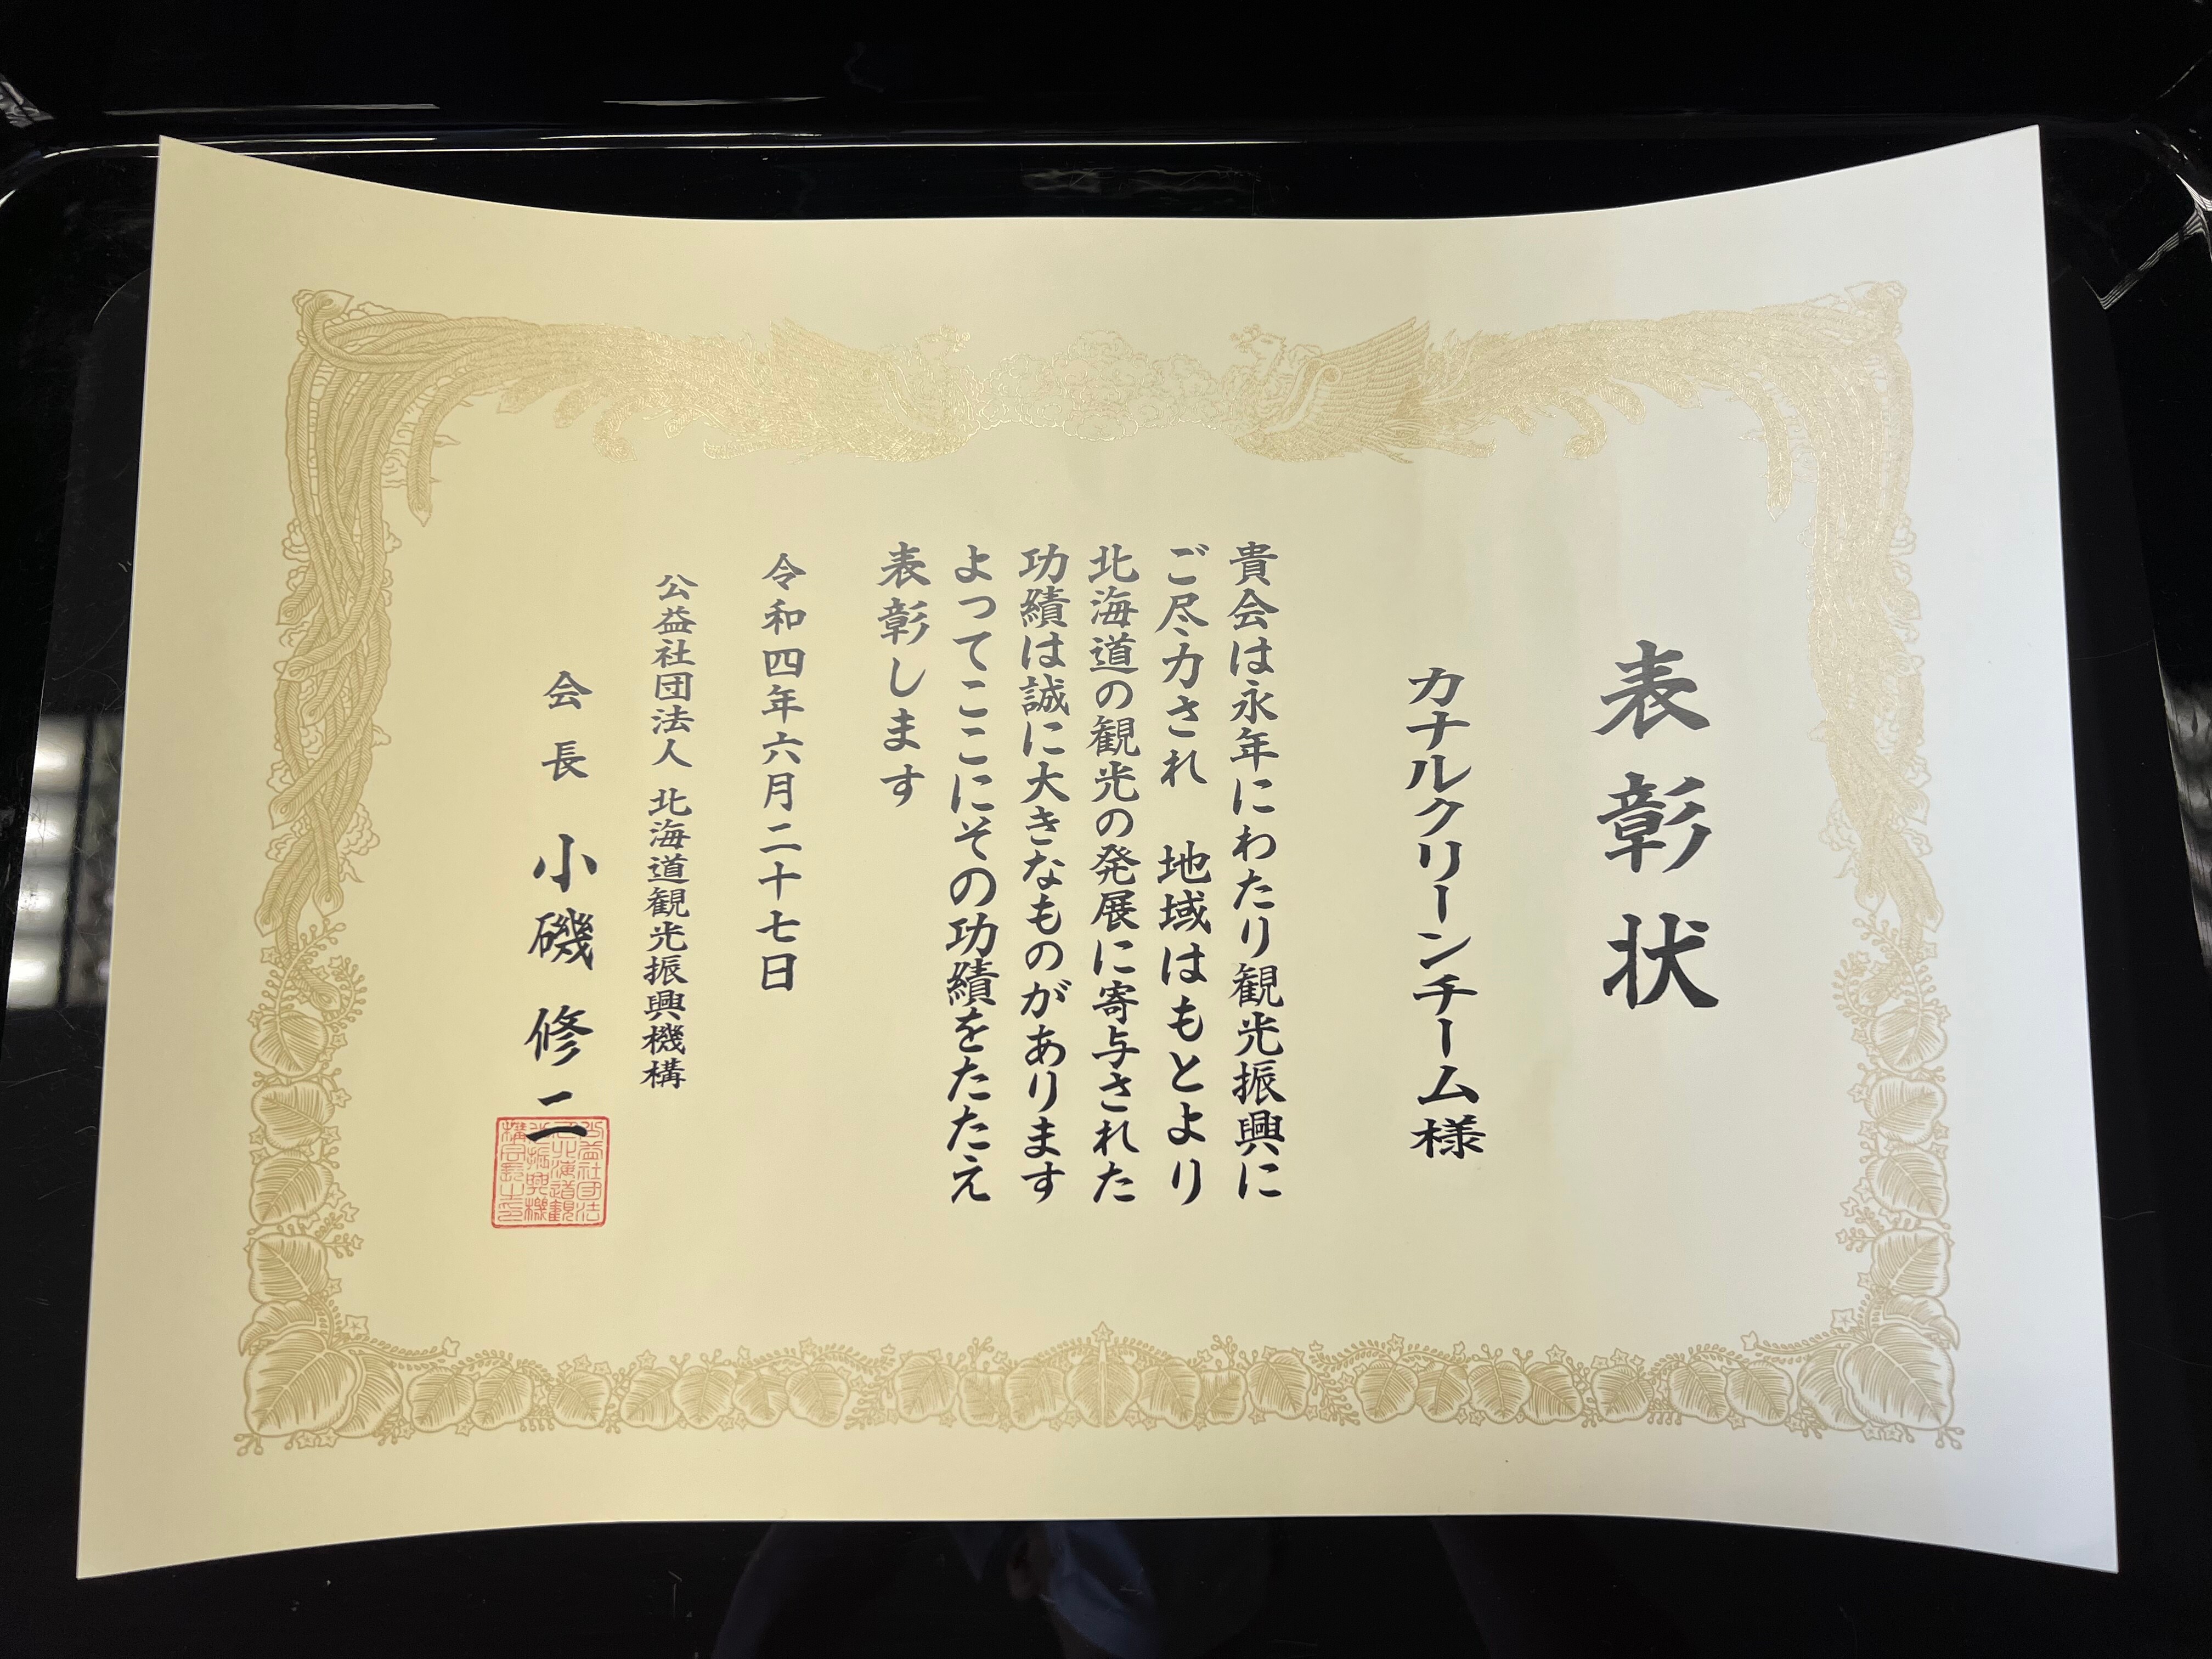 表彰状
カナルクリーンチーム様
貴会は永年にわたり観光振興に
ご尽力され 地域はもとより
北海道の観光の発展に寄与された
功績は誠に大きなものがあります
よってここにその功績をたたえ
表彰します
令和四年六月二十七日
公益社団法人 北海道観光振興機構
会長 小磯修二
公益社団法
人北海道観
光振興機
構会長之印